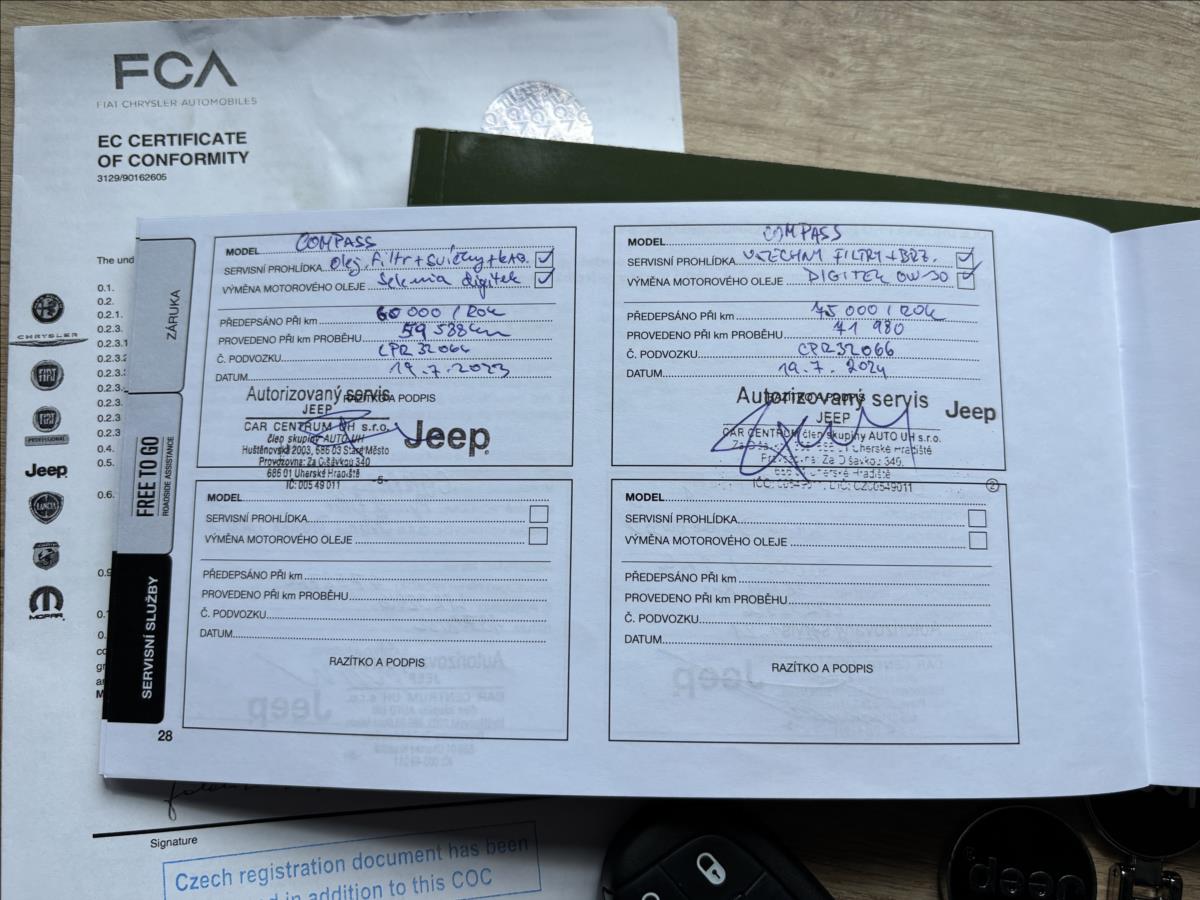 FCA
FIAT CHRYSLER AUTOMOBILES
EC CERTIFICATE
OF CONFORMITY
3129/90162605
The und
0.1.
0.2.
0.2.1.
0.2.3.
0.2.3.1
0.2.3.2
0.2.3.
0.2.3.
0.2.3
0.2.3
0.4.
0.5.
0.6.
0.9
CHRYSLER
FIAT
FIAT
PROFESSIONAL
Jeep
LANCIA
MOPAR
ZÁRUKA
FREE TO GO
ROADSIDE ASSISTANCE
SERVISNÍ SLUŽBY
MODEL COMPASS
SERVISNÍ PROHLÍDKA olej, filtr + svíčky + kab.
VÝMĚNA MOTOROVÉHO OLEJE Selenia digitek
PŘEDEPSÁNO PŘI km 60 000 / ROK
PROVEDENO PŘI km PROBĚHU 59 538 km
Č. PODVOZKU CPR32066
DATUM 19.7.2023
RAZÍTKO A PODPIS
Autorizovaný servis
JEEP
CAR CENTRUM UH s.r.o.
člen skupiny AUTO UH
Huštěnovská 2003, 686 03 Staré Město
Provozovna: Za Olšávkou 340
686 01 Uherské Hradiště
IČ: 005 49 011
-5-
Jeep
MODEL COMPASS
SERVISNÍ PROHLÍDKA VŠECHNY FILTRY + BRZ.
VÝMĚNA MOTOROVÉHO OLEJE DIGITEK 0W-30
PŘEDEPSÁNO PŘI km 75 000 / ROK
PROVEDENO PŘI km PROBĚHU 71 980
Č. PODVOZKU CPR32066
DATUM 19.7.2024
RAZÍTKO A PODPIS
Autorizovaný servis
JEEP
CAR CENTRUM člen skupiny AUTO UH s.r.o.
Provozovna: Za Olšávkou 340,
686 01 Uherské Hradiště
DIČ: CZ00549011
2
Jeep
MODEL
SERVISNÍ PROHLÍDKA
VÝMĚNA MOTOROVÉHO OLEJE
PŘEDEPSÁNO PŘI km
PROVEDENO PŘI km PROBĚHU
Č. PODVOZKU
DATUM
RAZÍTKO A PODPIS
MODEL
SERVISNÍ PROHLÍDKA
VÝMĚNA MOTOROVÉHO OLEJE
PŘEDEPSÁNO PŘI km
PROVEDENO PŘI km PROBĚHU
Č. PODVOZKU
DATUM
RAZÍTKO A PODPIS
28
Signature
Czech registration document has been
in addition to this COC
Jeep